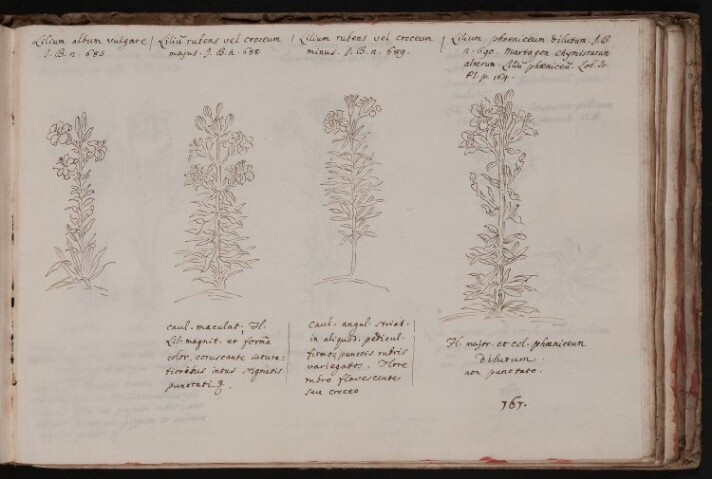 Lilium altum vulgare
J. B. n. 685
Liliū rubens vel croceum
majus. J. B. n. 688
Lilium rubens vel croceum
minus. J. B. n. 689.
Lilium phoeniceum dilutum J. B
n. 690. Martagon chymistarum
alterum. Liliū phœniceū. Lob. Ic.
Pl. p. 164.
caul. maculat. Fl.
Lil. magnit. et forma
color. coruscante satura=
tioribus intus
punctati
Caul. angul. striat.
in aliquot pedicul.
firmos punctis rubris
variegatos. Flore
rubro flavescente
seu croceo
Fl. major et col. phœniceum
dilutum.
non punctato.
761.